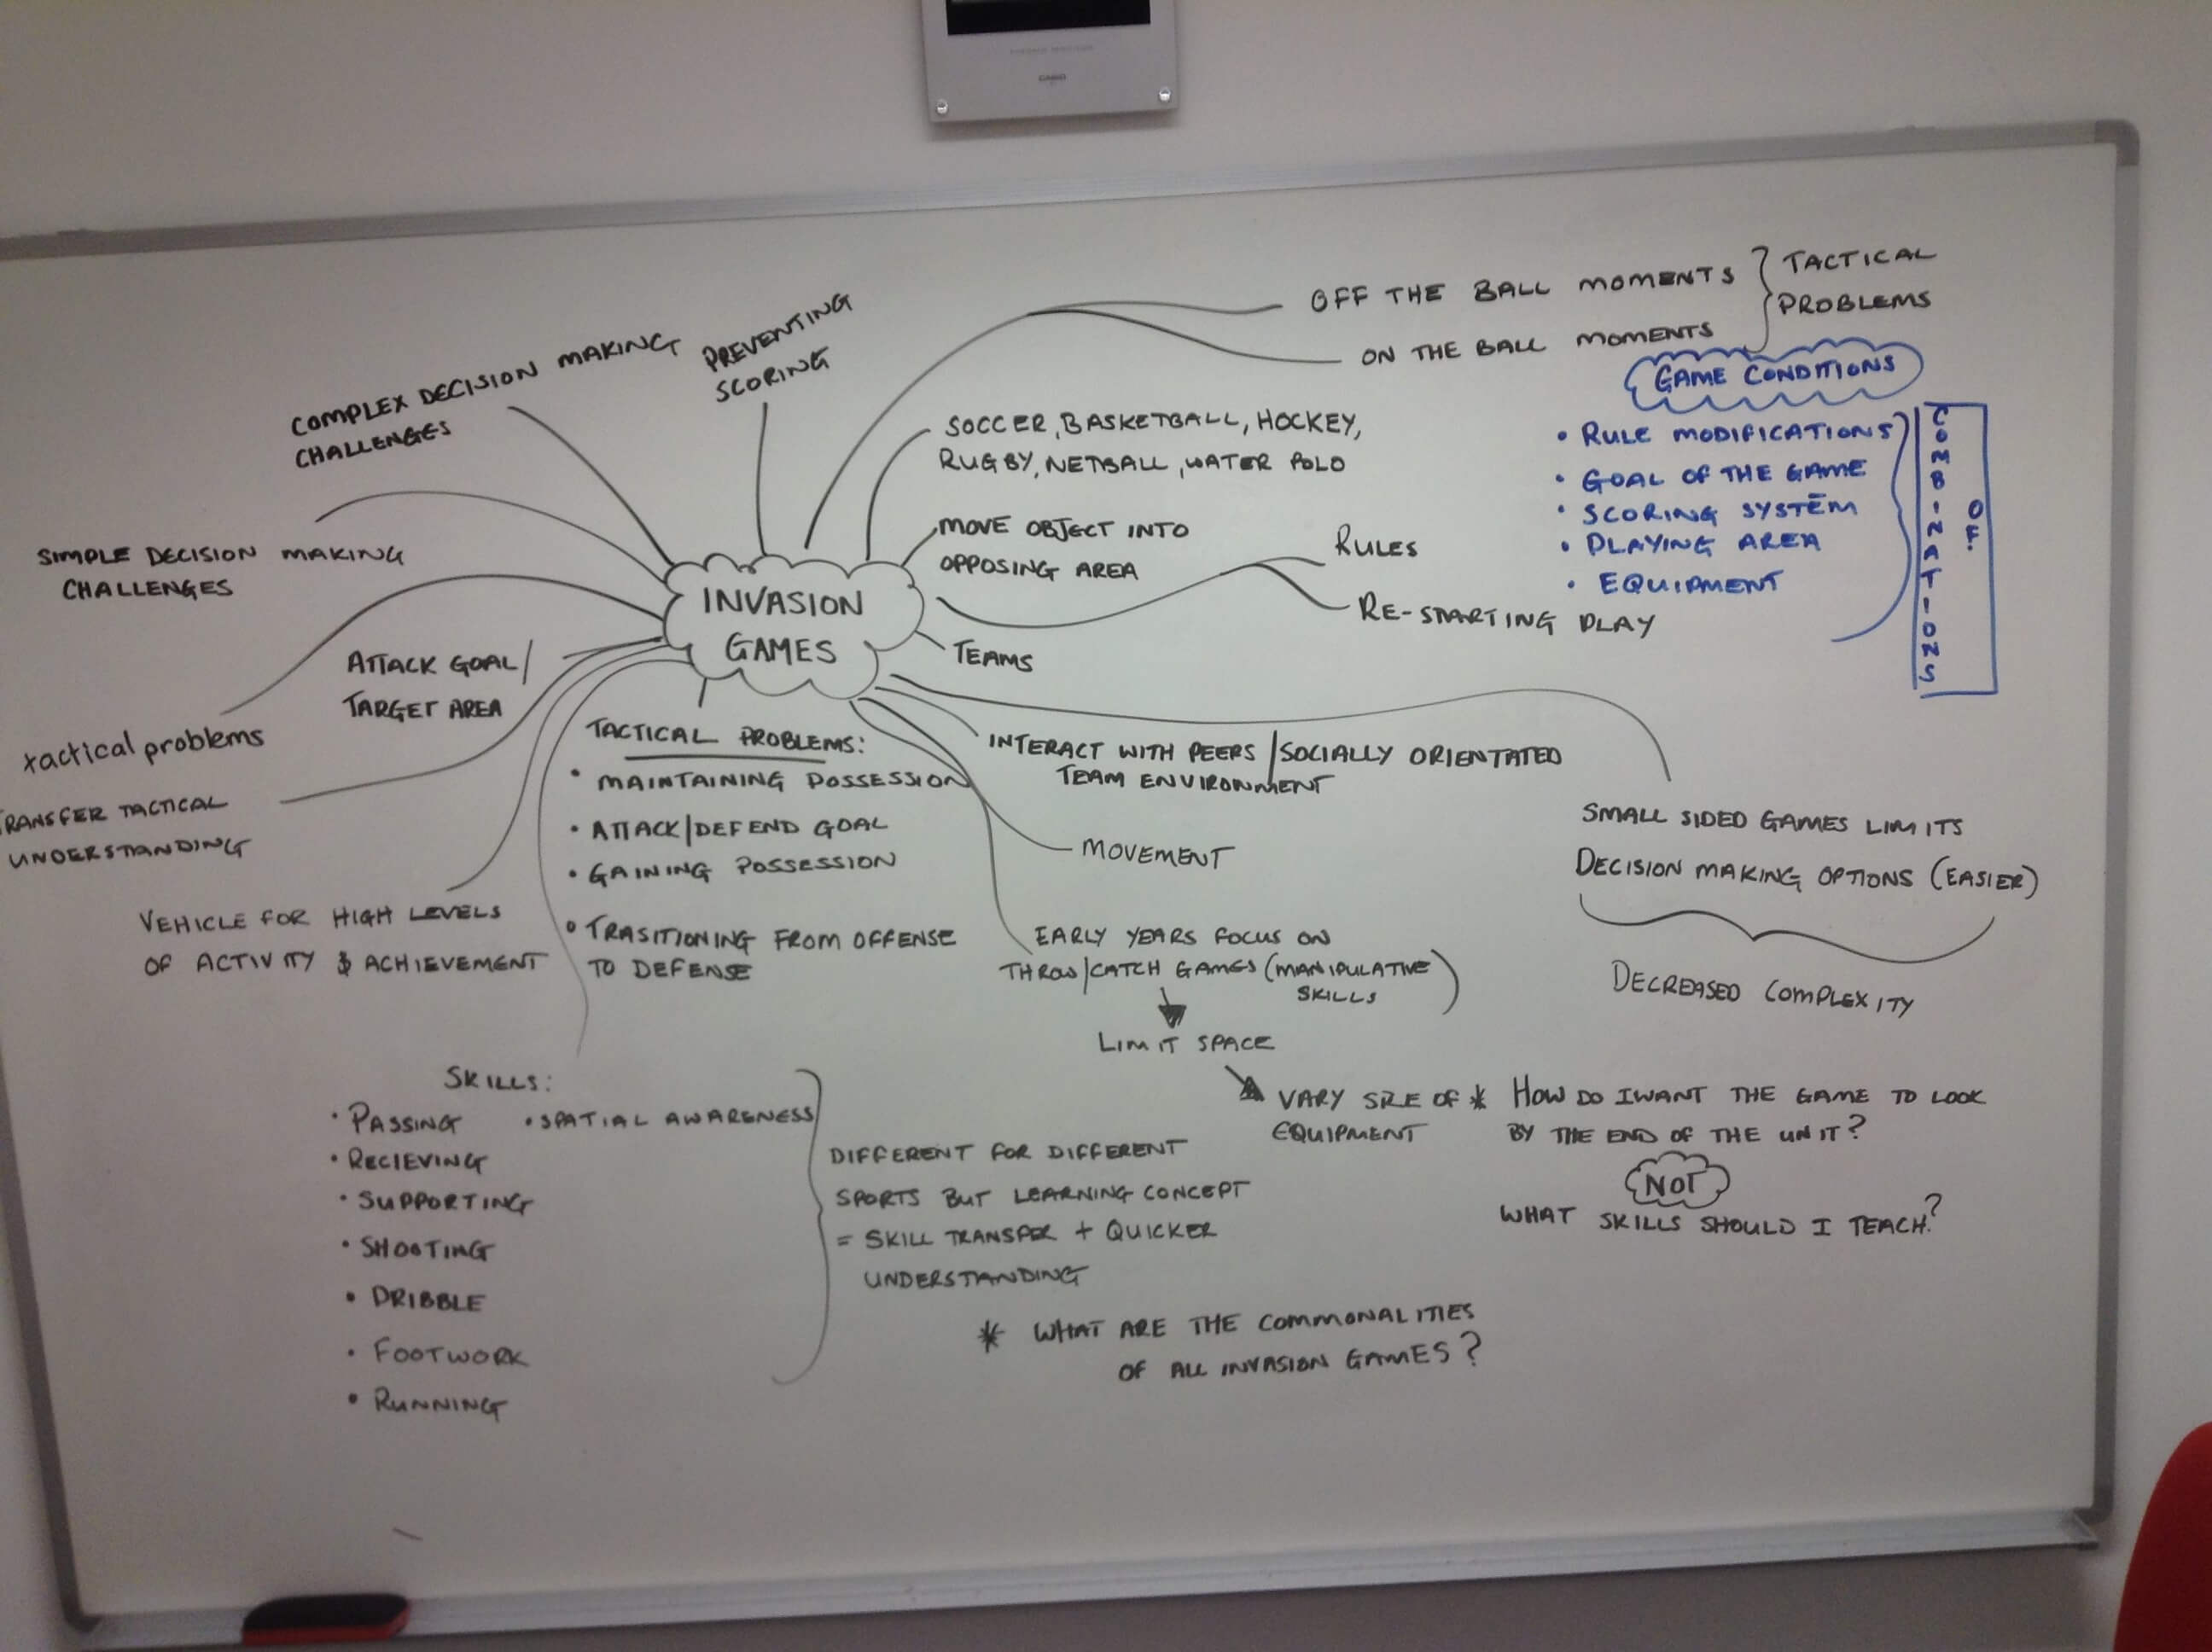 CASIO
OFF THE BALL MOMENTS
ON THE BALL MOMENTS
TACTICAL
PROBLEMS
PREVENTING
SCORING
COMPLEX DECISION MAKING
CHALLENGES
SIMPLE DECISION MAKING
CHALLENGES
SOCCER, BASKETBALL, HOCKEY,
RUGBY, NETBALL, WATER POLO
GAME CONDITIONS
• RULE MODIFICATIONS
• GOAL OF THE GAME
• SCORING SYSTEM
• PLAYING AREA
• EQUIPMENT
COMBINATIONS
OF:
MOVE OBJECT INTO
OPPOSING AREA
RULES
RE-STARTING PLAY
INVASION
GAMES
TEAMS
ATTACK GOAL/
TARGET AREA
tactical problems
TRANSFER TACTICAL
UNDERSTANDING
VEHICLE FOR HIGH LEVELS
OF ACTIVITY & ACHIEVEMENT
TACTICAL PROBLEMS:
• MAINTAINING POSSESSION
• ATTACK/DEFEND GOAL
• GAINING POSSESSION
• TRASITIONING FROM OFFENSE
TO DEFENSE
INTERACT WITH PEERS/SOCIALLY ORIENTATED
TEAM ENVIRONMENT
MOVEMENT
EARLY YEARS FOCUS ON
THROW/CATCH GAMES (MANIPULATIVE
SKILLS)
LIMIT SPACE
VARY SIZE OF
EQUIPMENT
SMALL SIDED GAMES LIMITS
DECISION MAKING OPTIONS (EASIER)
DECREASED COMPLEXITY
* HOW DO I WANT THE GAME TO LOOK
BY THE END OF THE UNIT?
NOT
WHAT SKILLS SHOULD I TEACH?
SKILLS:
• PASSING • SPATIAL AWARENESS
• RECIEVING
• SUPPORTING
• SHOOTING
• DRIBBLE
• FOOTWORK
• RUNNING
DIFFERENT FOR DIFFERENT
SPORTS BUT LEARNING CONCEPT
= SKILL TRANSFER + QUICKER
UNDERSTANDING
* WHAT ARE THE COMMONALITIES
OF ALL INVASION GAMES?